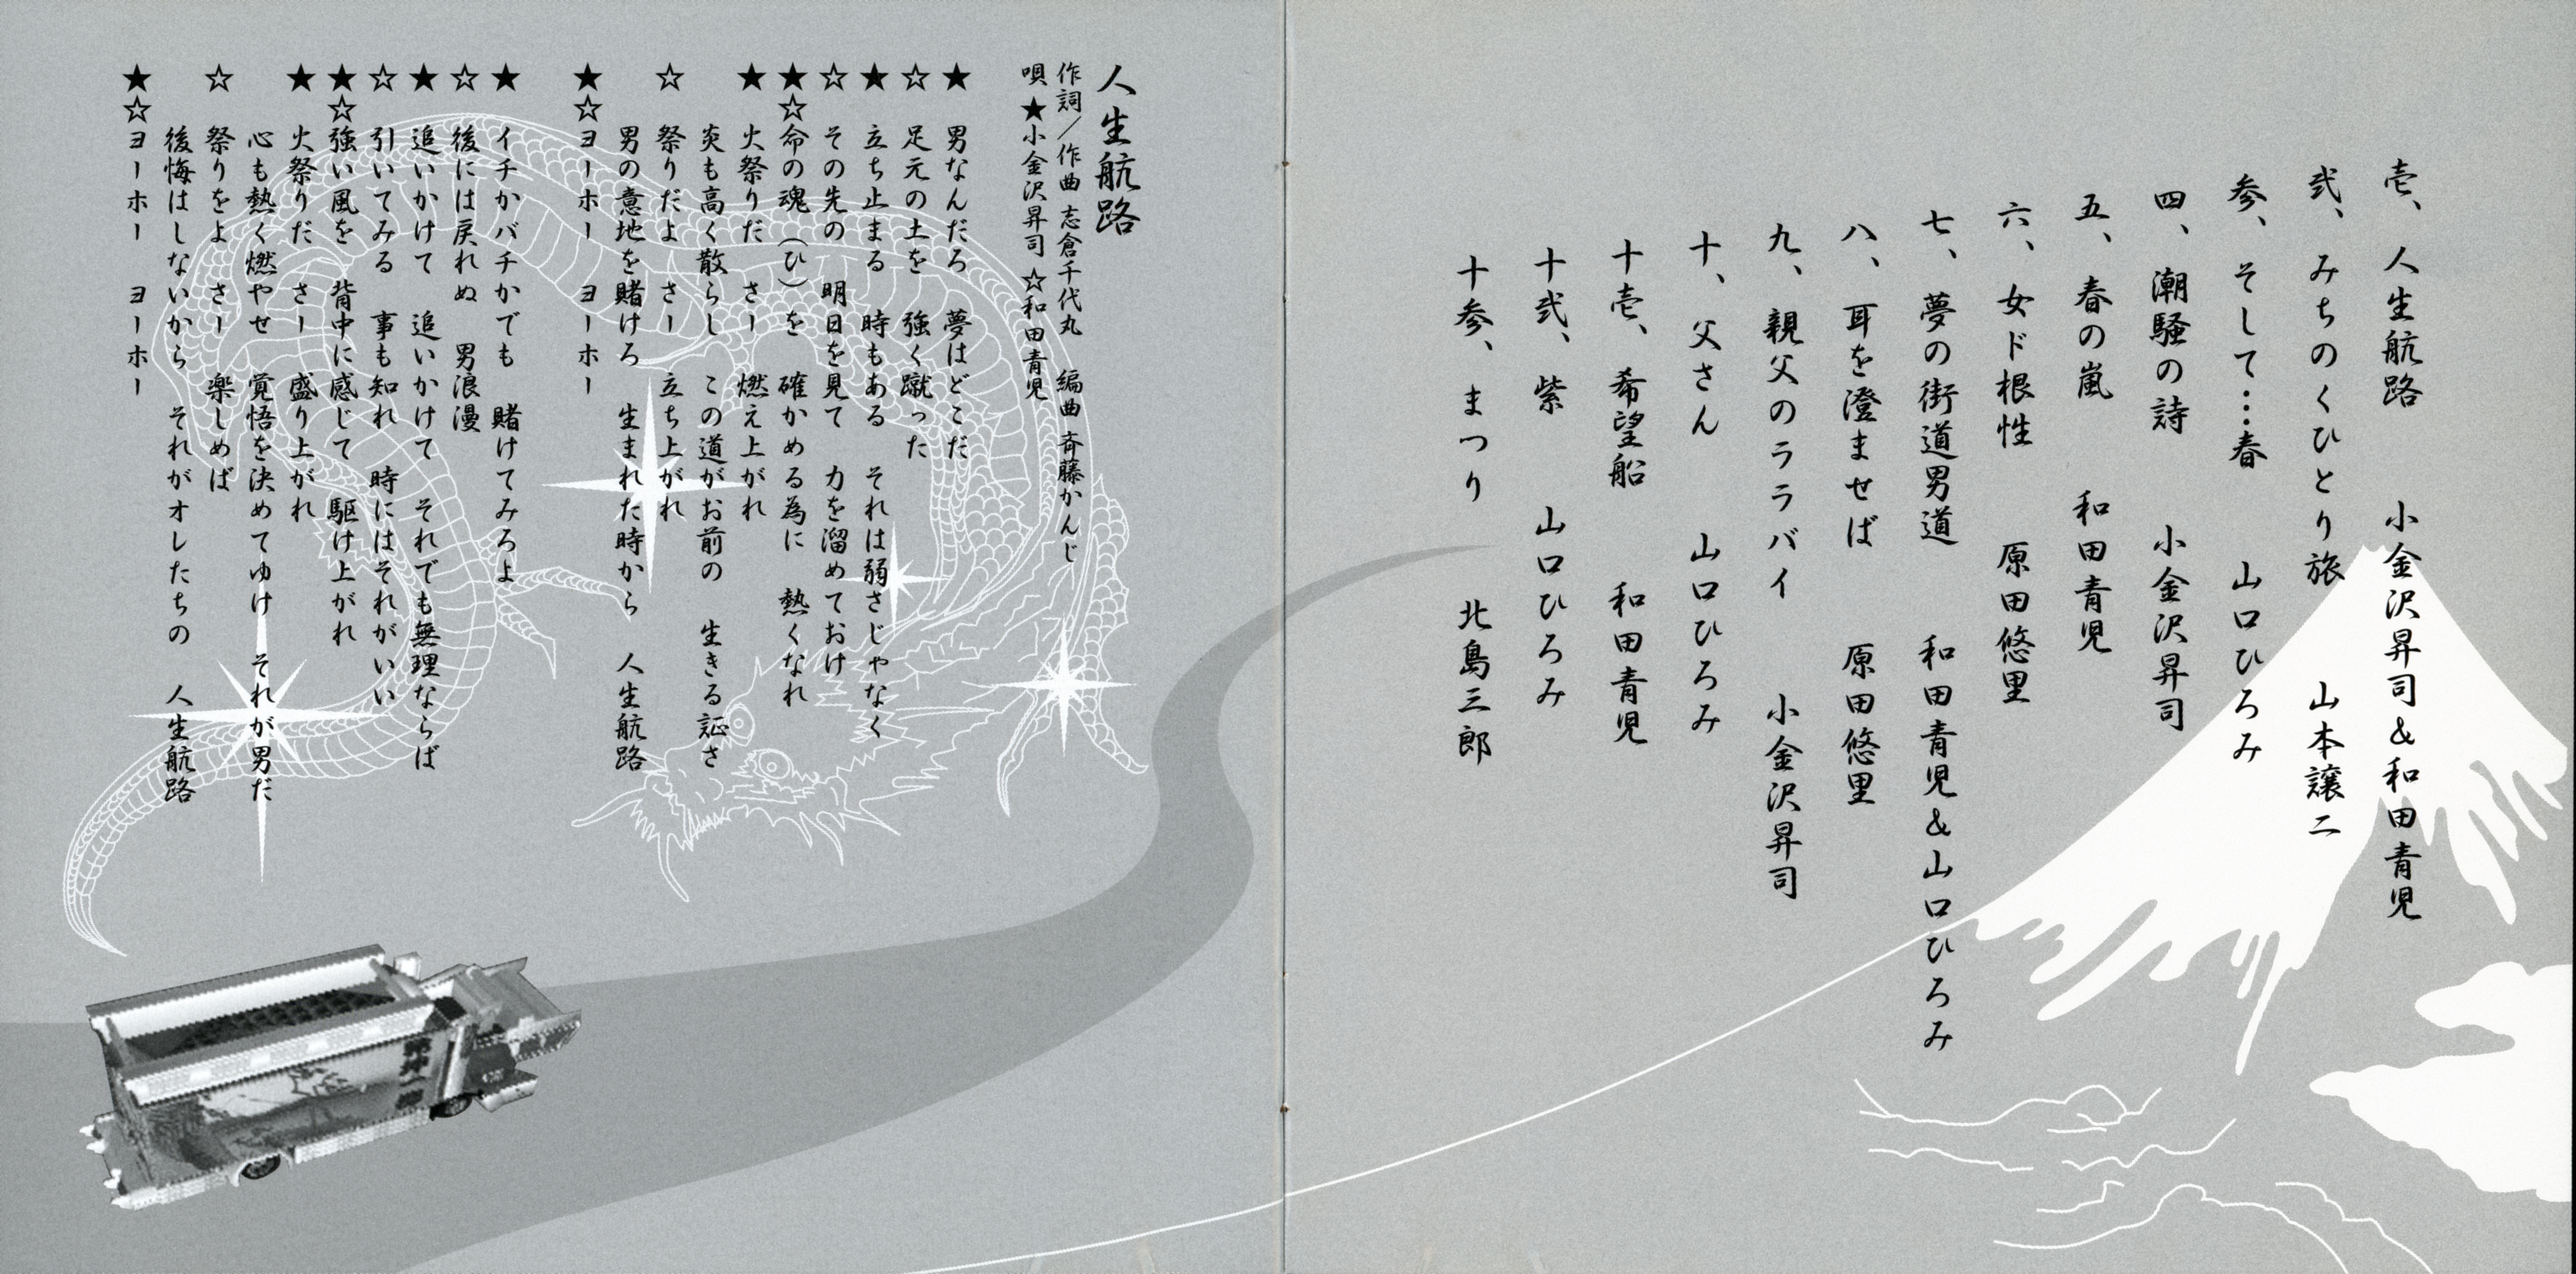 壱、人生航路　小金沢昇司&和田青児
弐、みちのくひとり旅　山本譲二
参、そして…春　山口ひろみ
四、潮騒の詩　小金沢昇司
五、春の嵐　和田青児
六、女ド根性　原田悠里
七、夢の街道男道　和田青児&山口ひろみ
八、耳を澄ませば　原田悠里
九、親父のララバイ　小金沢昇司
十、父さん　山口ひろみ
十壱、希望船　和田青児
十弐、紫　山口ひろみ
十参、まつり　北島三郎
人生航路
作詞／作曲 志倉千代丸　編曲 斉藤かんじ
唄 ★小金沢昇司 ☆和田青児
★　男なんだろ　夢はどこだ
☆　足元の土を　強く蹴った
★　立ち止まる　時もある　それは弱さじゃなく
☆　その先の　明日を見て　力を溜めておけ
★☆命の魂（ひ）を　確かめる為に　熱くなれ
★　火祭りだ　さー　燃え上がれ
炎も高く散らし　この道がお前の　生きる証さ
☆　祭りだよ　さー　立ち上がれ
男の意地を賭けろ　生まれた時から　人生航路
★☆ヨーホー　ヨーホー
★　イチかバチかでも　賭けてみろよ
☆　後には戻れぬ　男浪漫
★　追いかけて　追いかけて　それでも無理ならば
☆　引いてみる　事も知れ　時にはそれがいい
★☆強い風を　背中に感じて　駆け上がれ
★　火祭りだ　さー　盛り上がれ
心も熱く燃やせ　覚悟を決めてゆけ　それが男だ
☆　祭りをよ　さー　楽しめば
後悔はしないから　それがオレたちの　人生航路
★☆ヨーホー　ヨーホー